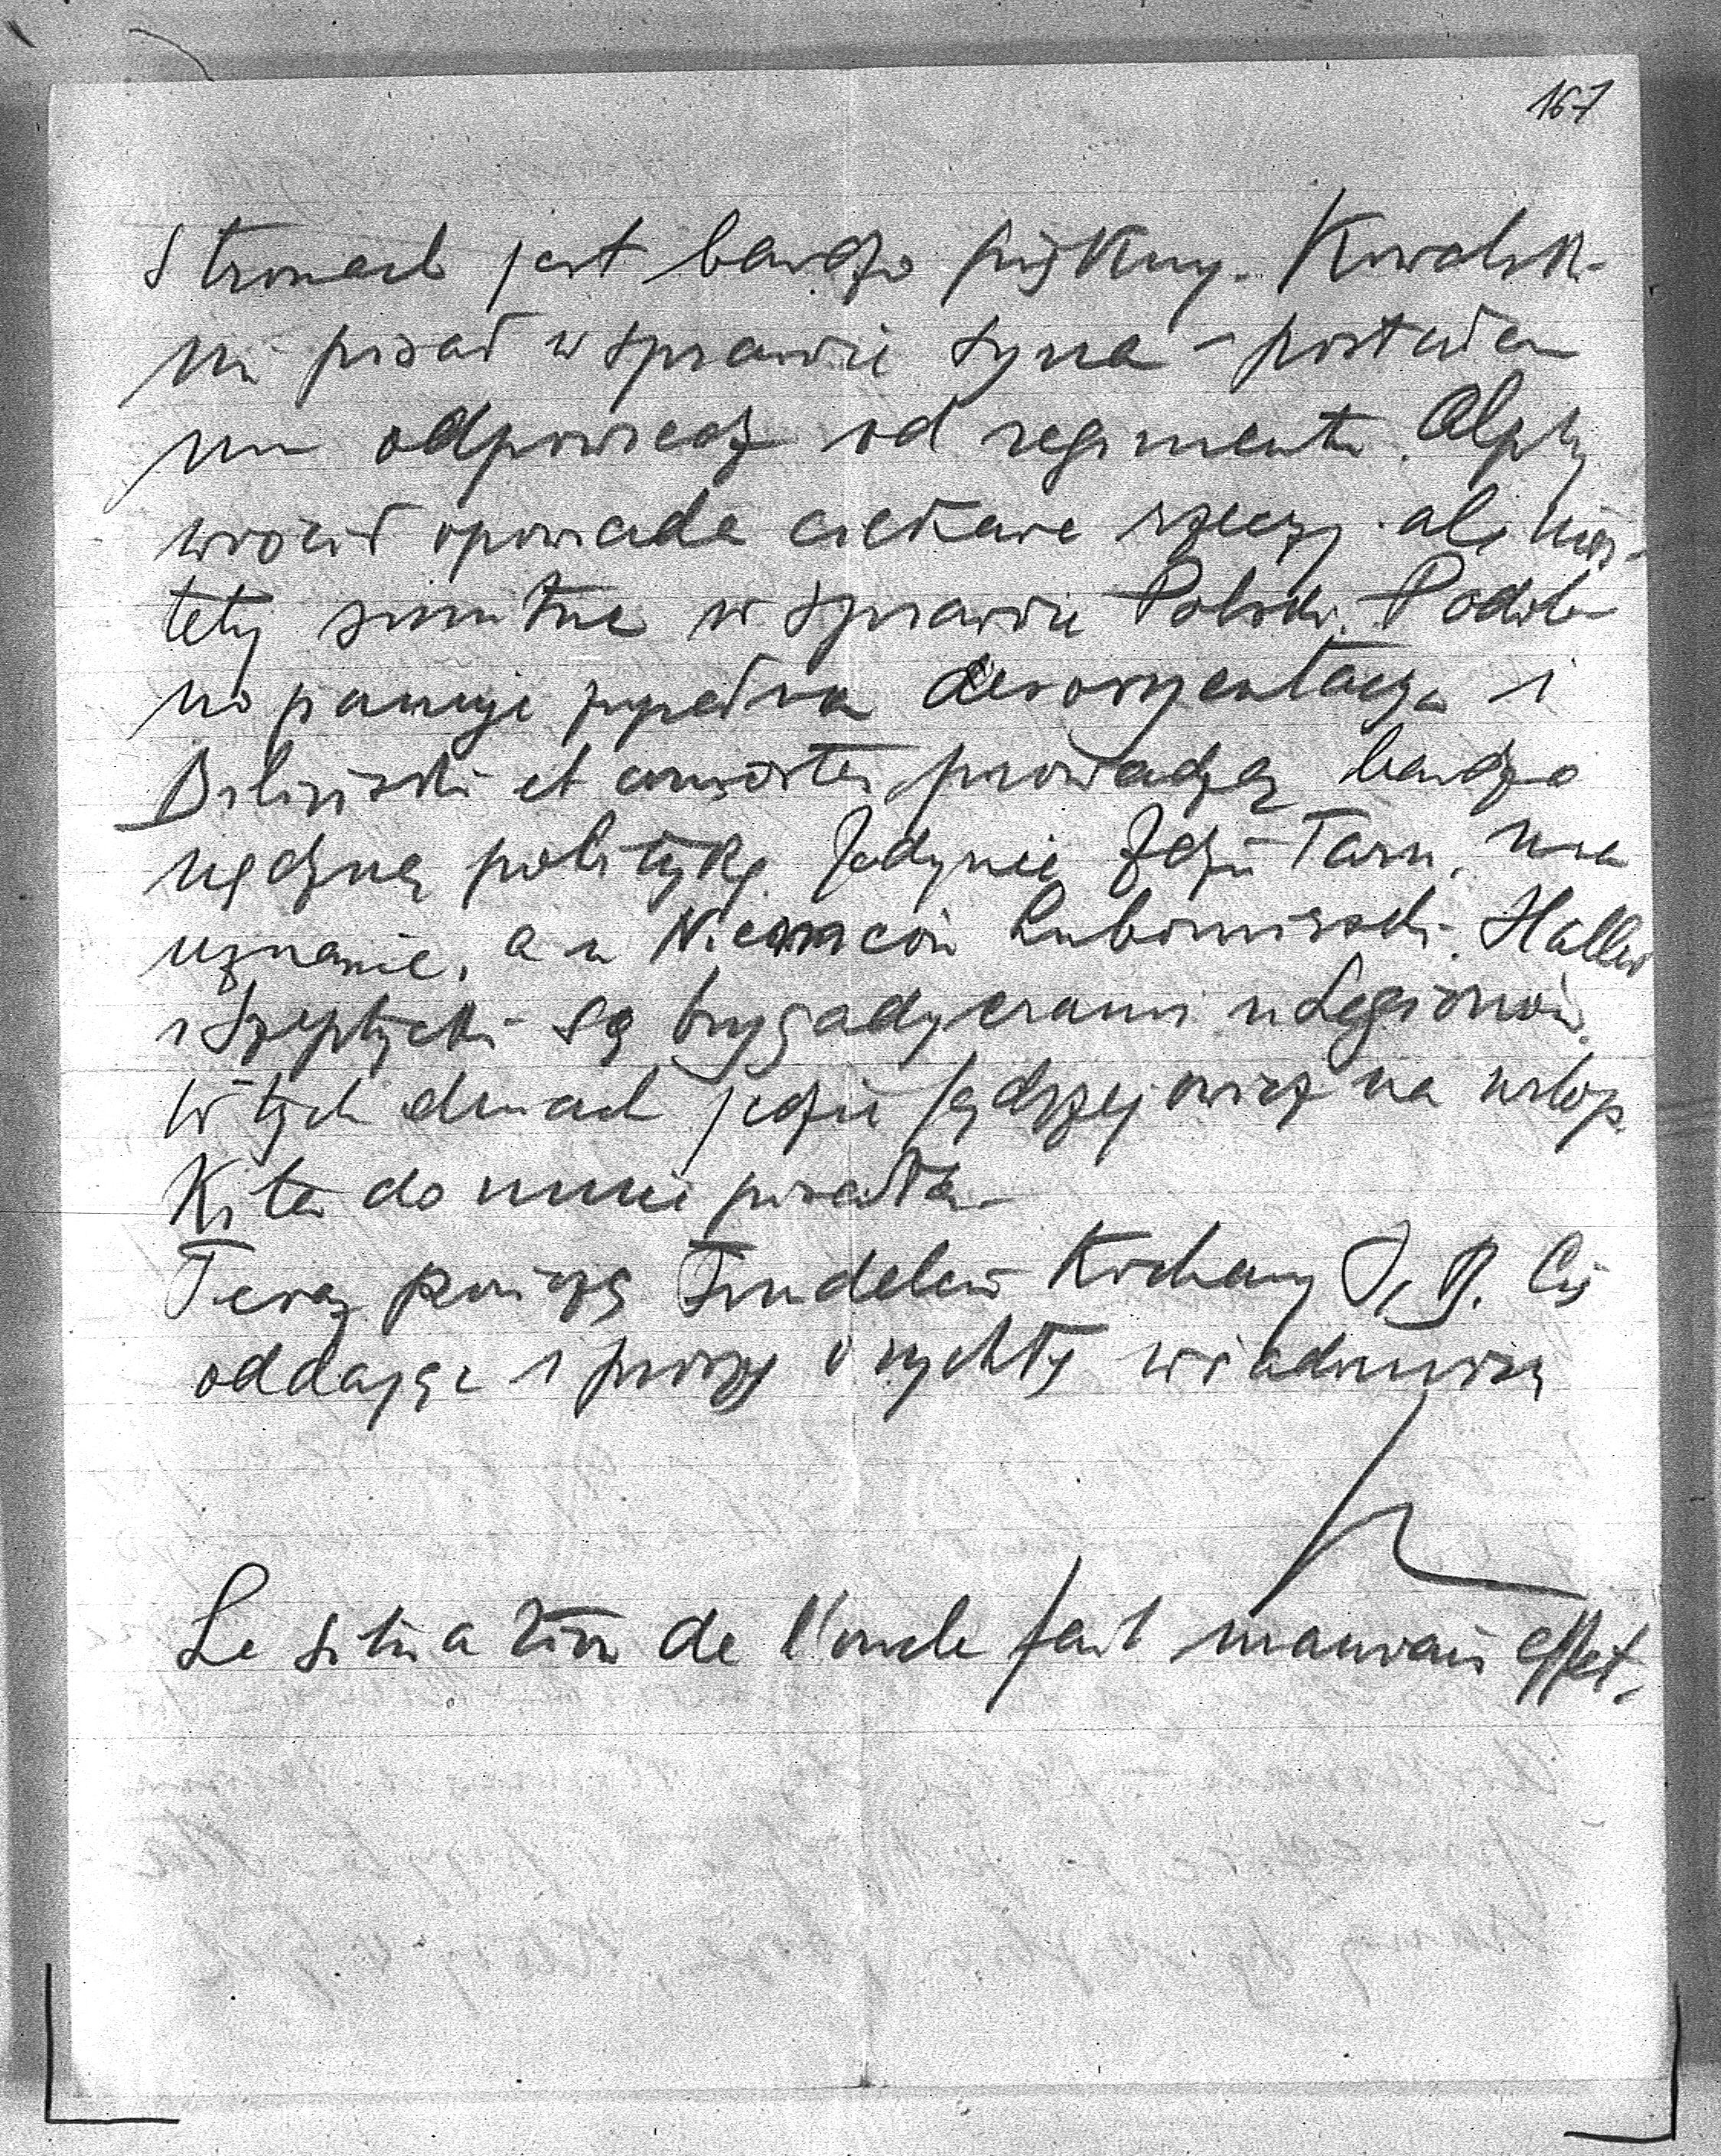 167
stronach jest bardzo piękny. Kowalski
mi pisał w sprawie syna – posłałem
mu odpowiedź od regimentu. Alph.
wrócił opowiada ciekawe rzeczy. ale nies-
tety smutne w sprawie Polski. Podob-
no panuje zupełna desoryentacya i
Biliński et consortes prowadzą bardzo
nędzną politykę. Jedynie Zdziś Tarn. ma
uznanie, a u Niemców Lubomirski. Haller
i Szeptycki są brygadyerami u Legionów.
W tych dniach jedzie Jędrzejowicz na urlop.
Kita do mnie pisała –
Teraz kończę Kochany J. B. Cię
oddając i proszę o rychłą wiadomość
Le situation de l'oncle fait mauvais effet.